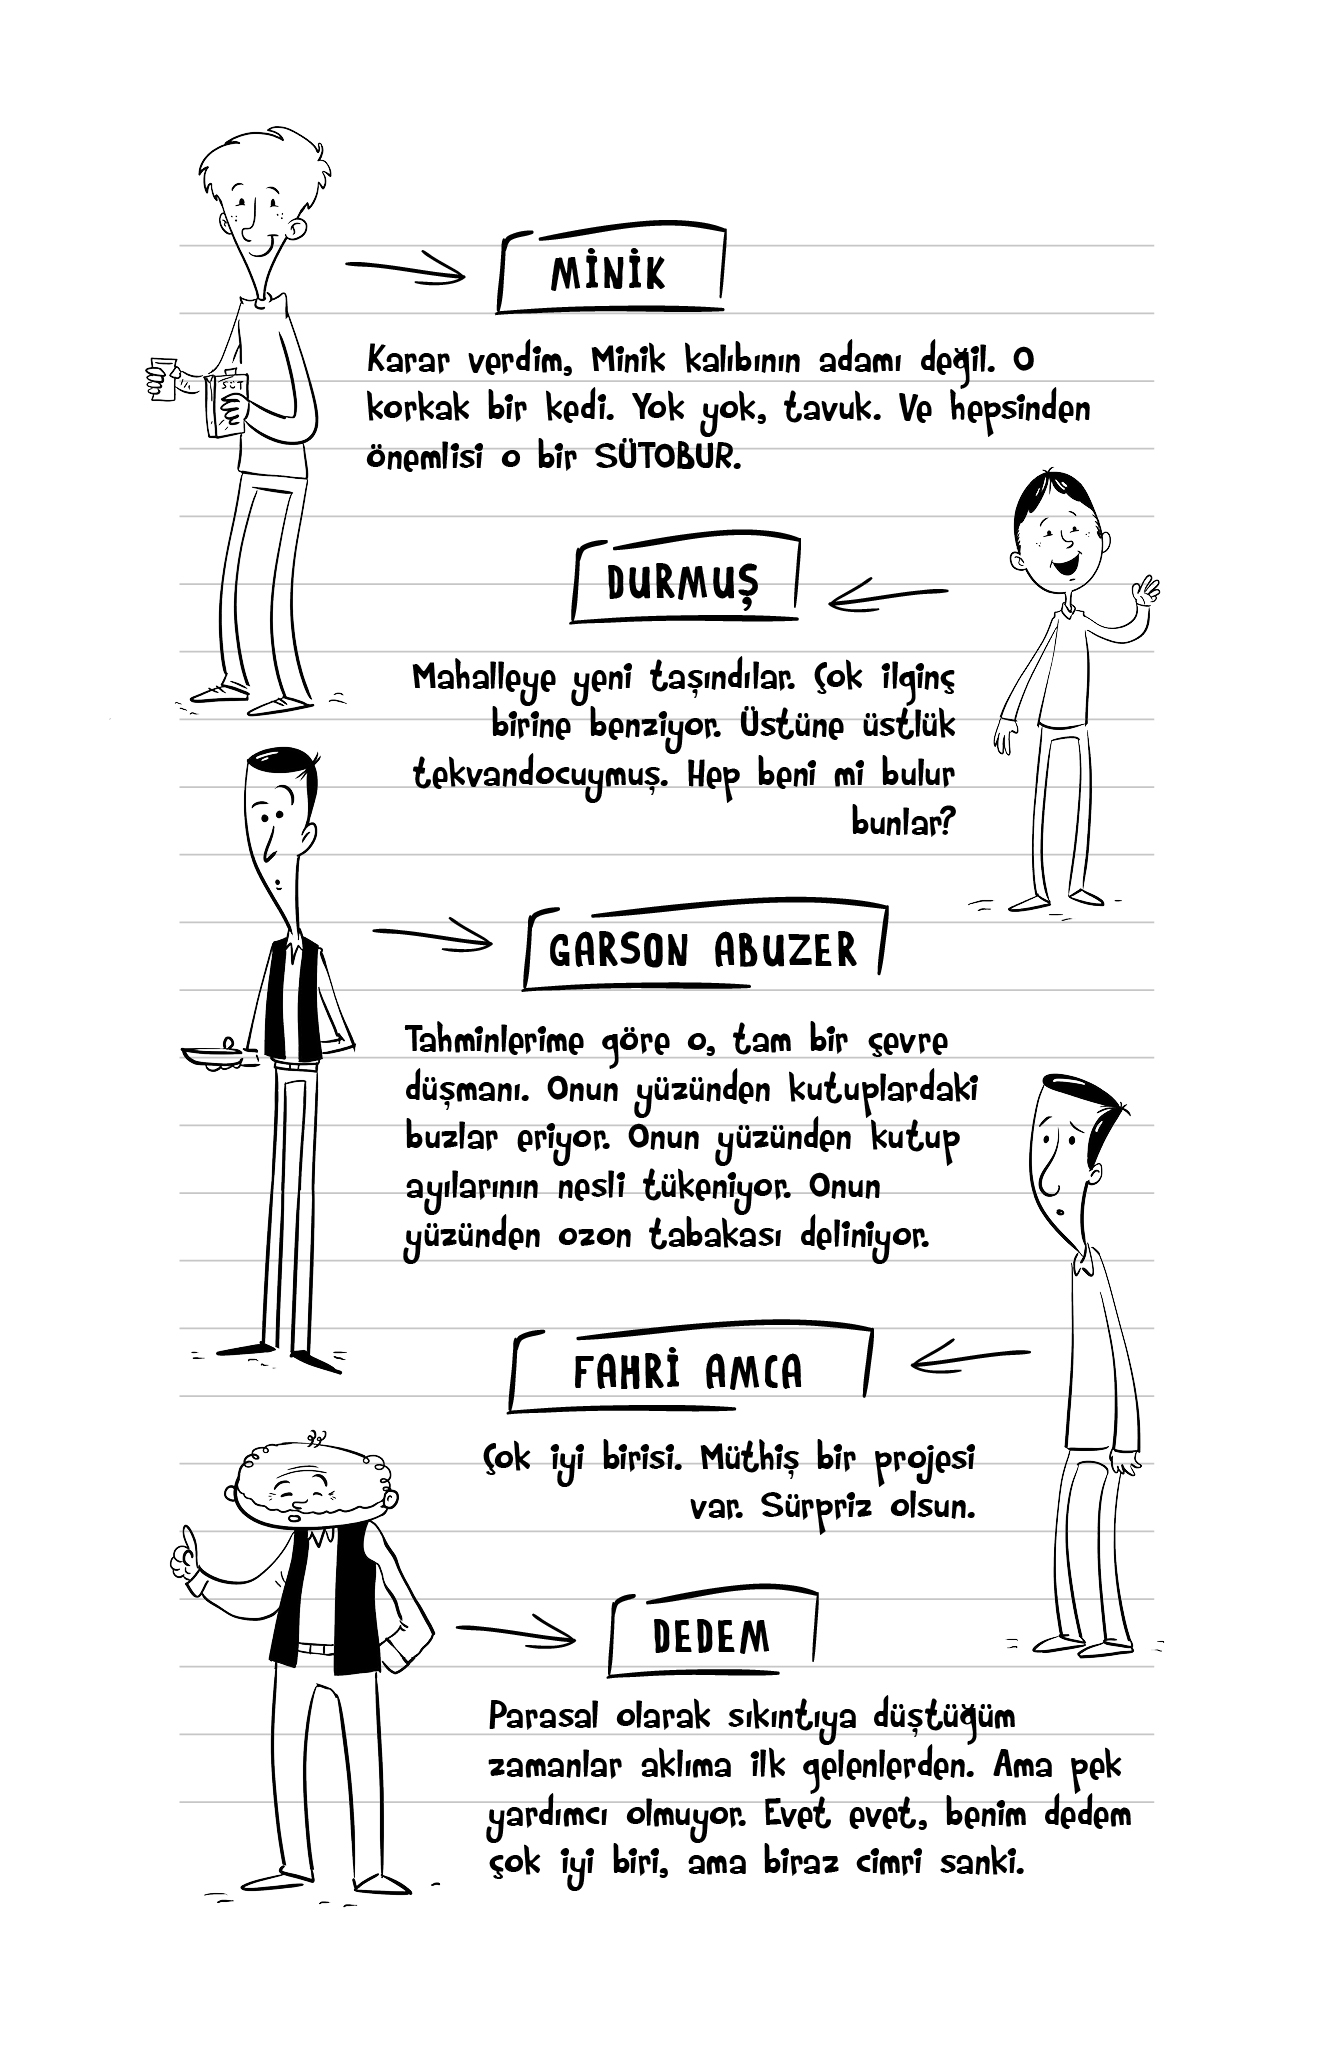 MİNİK
Karar verdim, Minik kalıbının adamı değil. O
korkak bir kedi. Yok yok, tavuk. Ve hepsinden
önemlisi o bir SÜTOBUR.
SÜT
DURMUŞ
Mahalleye yeni taşındılar. Çok ilginç
birine benziyor. Üstüne üstlük
tekvandocuymuş. Hep beni mi bulur
bunlar?
GARSON ABUZER
Tahminlerime göre o, tam bir çevre
düşmanı. Onun yüzünden kutuplardaki
buzlar eriyor. Onun yüzünden kutup
ayılarının nesli tükeniyor. Onun
yüzünden ozon tabakası deliniyor.
FAHRİ AMCA
Çok iyi birisi. Müthiş bir projesi
var. Sürpriz olsun.
DEDEM
Parasal olarak sıkıntıya düştüğüm
zamanlar aklıma ilk gelenlerden. Ama pek
yardımcı olmuyor. Evet evet, benim dedem
çok iyi biri, ama biraz cimri sanki.